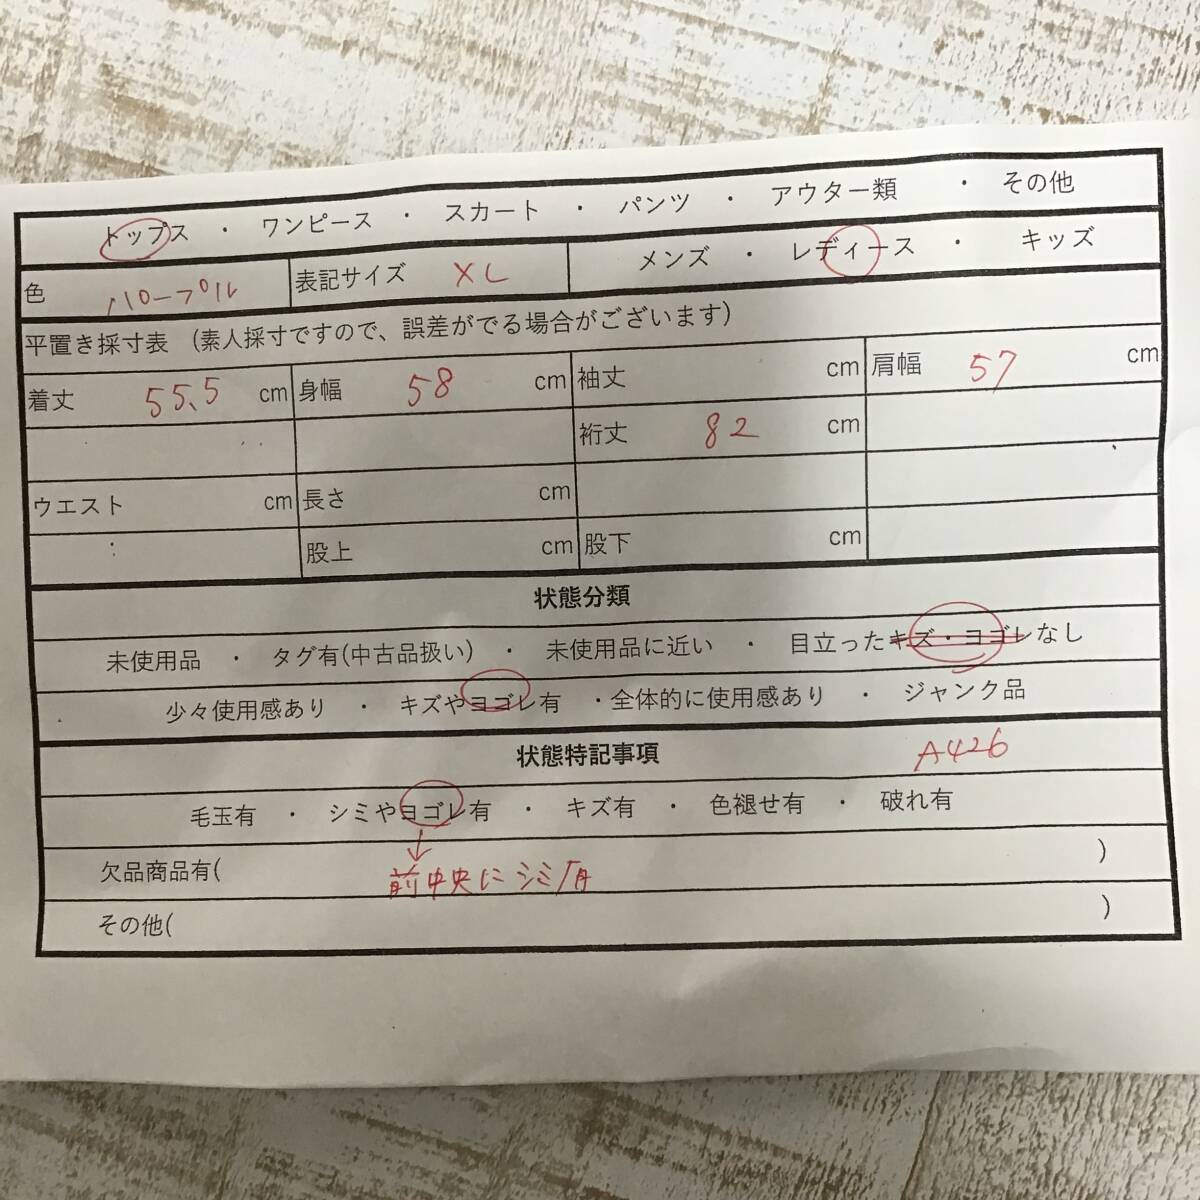 トップス ・ ワンピース ・ スカート ・ パンツ ・ アウター類 ・ その他
色 パープル 表記サイズ XL メンズ ・ レディース ・ キッズ
平置き採寸表 (素人採寸ですので、誤差がでる場合がございます)
着丈 55.5 cm 身幅 58 cm 袖丈 cm 肩幅 57 cm
裄丈 82 cm
ウエスト cm 長さ cm
股上 cm 股下 cm
状態分類
未使用品 ・ タグ有(中古品扱い) ・ 未使用品に近い ・ 目立ったキズ・ヨゴレなし
少々使用感あり ・ キズやヨゴレ有 ・全体的に使用感あり ・ ジャンク品
状態特記事項 A426
毛玉有 ・ シミやヨゴレ有 ・ キズ有 ・ 色褪せ有 ・ 破れ有
欠品商品有( 前中央にシミ有 )
その他( )